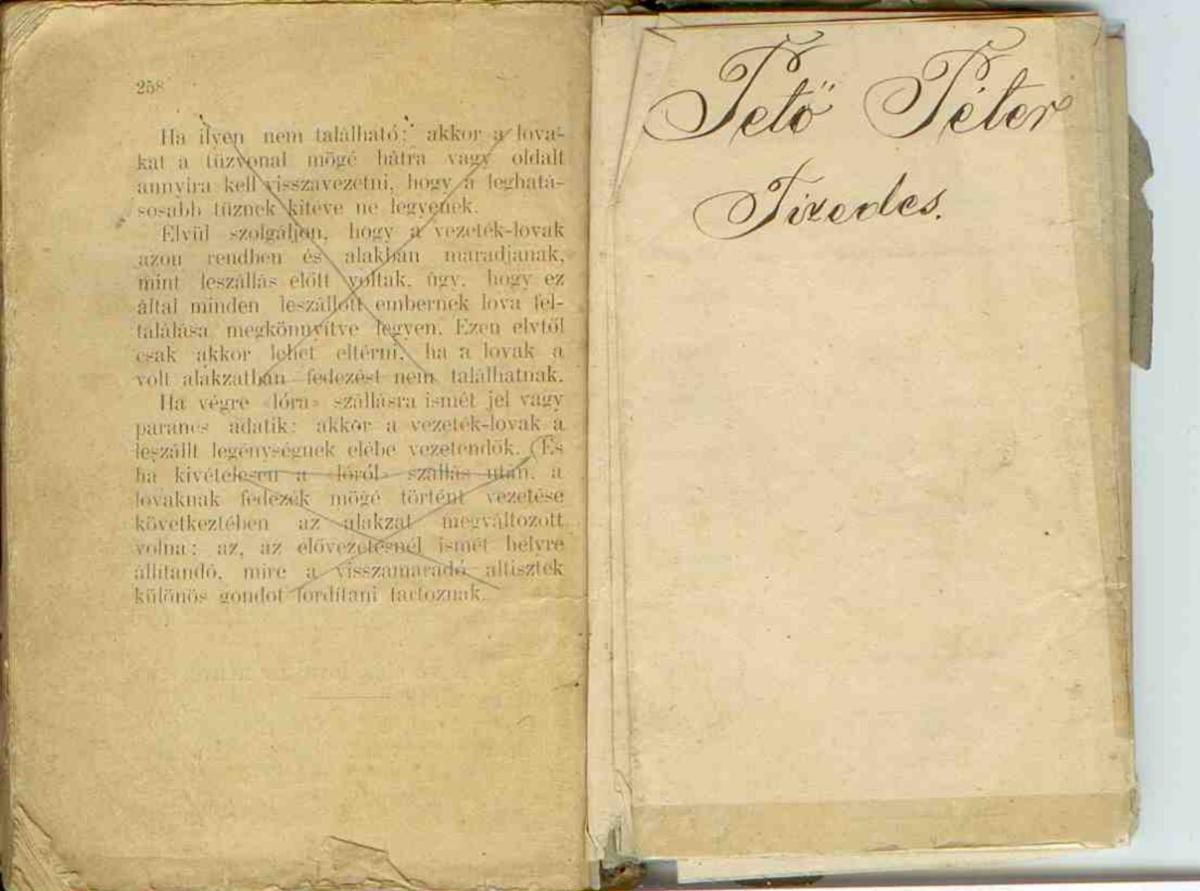 258
Ha ilyen nem található; akkor a lova-
kat a tüzvonal mögé hátra vagy oldalt
annyira kell visszavezetni, hogy a leghatá-
sosabb tüznek kitéve ne legyenek.
Elvül szolgáljon, hogy a vezeték-lovak
azon rendben és alakban maradjanak,
mint leszállás előtt voltak, úgy, hogy ez
által minden leszállott embernek lova fel-
találása megkönnyítve legyen. Ezen elvtől
csak akkor lehet eltérni, ha a lovak a
volt alakzatban fedezést nem találhatnak.
Ha végre «lóra» szállásra ismét jel vagy
parancs adatik: akkor a vezeték-lovak a
leszállt legénységnek elébe vezetendők. (És
ha kivételesen a «lóról» szállás után, a
lovaknak fedezék mögé történt vezetése
következtében az alakzat megváltozott
volna: az, az elővezetésnél ismét helyre
állítandó, mire a visszamaradó altisztek
különös gondot fordítani tartoznak.
Pető Péter
Tizedes.